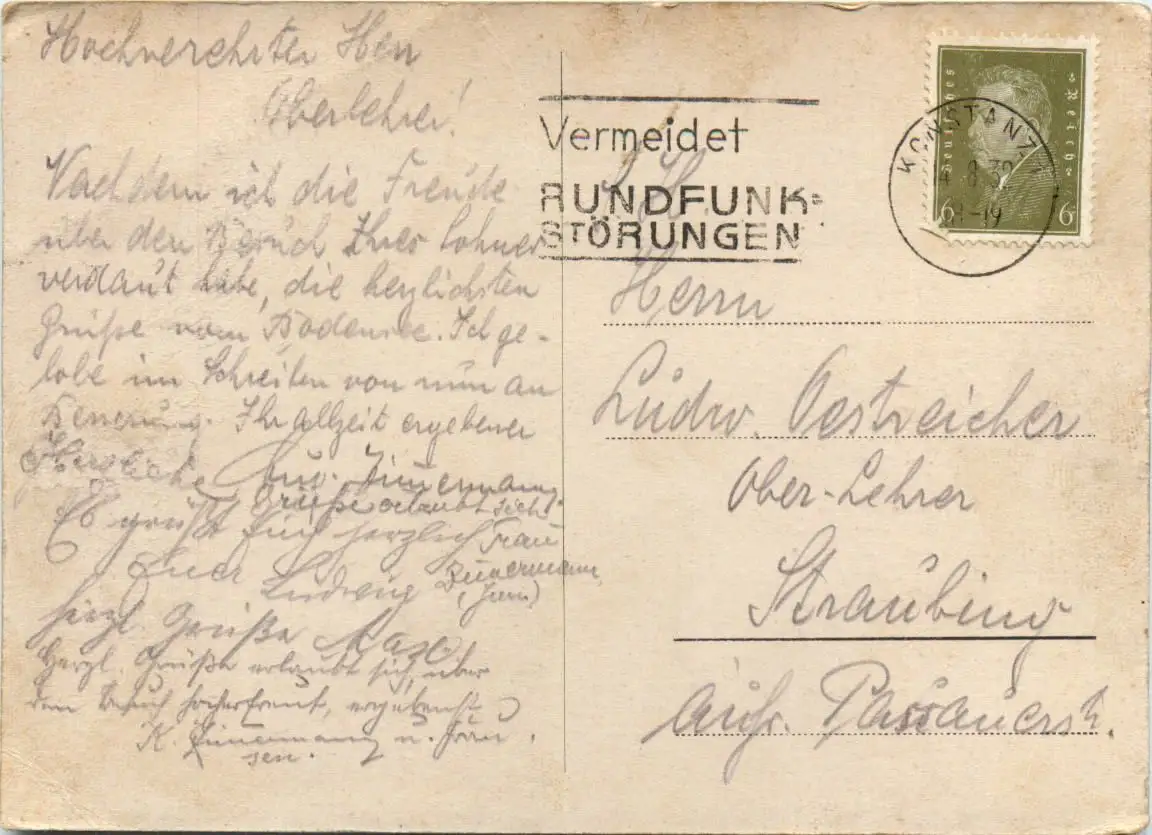 Hochverehrter Herr
Oberlehrer!
Nachdem ich die Freude
über den Besuch Ihres Sohnes
verdaut habe, die herzlichsten
Grüße vom Bodensee. Ich ge-
lobe im Schreiben von nun an
Besserung. Ihr allzeit ergebener
Herzliche
Grüße erlaubt sich
Es grüßt Euch herzlich Frau
Euer Ludwig
(jun.)
herzl. Grüße
Herzl. Grüße erlaubt sich, über
den Besuch hocherfreut, ergebenst
K. u. Frau.
sen.
Vermeidet
RUNDFUNK-
STÖRUNGEN
Deutsches Reich
6 6
KONSTANZ
8.30
-19
Herrn
Ludw. Oestreicher
Ober-Lehrer
Straubing
Passauerstr.